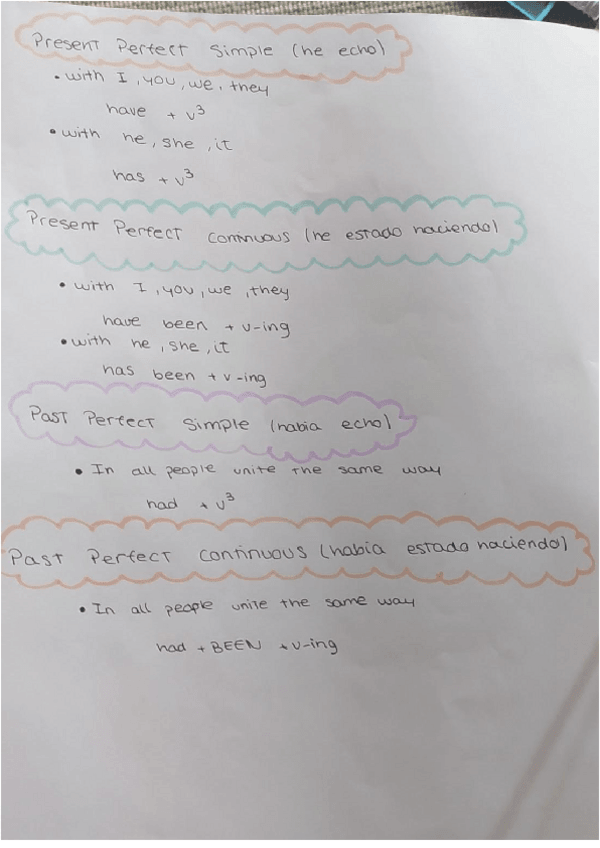 Present Perfect Simple (he echo)
• with I, you, we, they
have + v³
• with he, she, it
has + v³
Present Perfect Continuous (he estado haciendo)
• with I, you, we, they
have been + v-ing
• with he, she, it
has been + v-ing
Past Perfect Simple (habia echo)
• In all people unite the same way
had + v³
Past Perfect Continuous (habia estado haciendo)
• In all people unite the same way
had + BEEN + v-ing